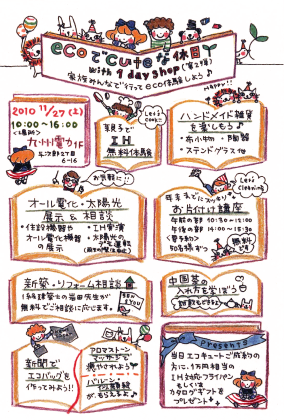 ecoでcuteな休日
with 1 day shop (第2弾)
家族みんなで行ってeco体験しよう♪
HAPPY!!
2010 11/27(土)
10:00~16:00
<場所>
九州電力1F
6-16
親子で
IH
無料体験
Let's Cooking
ハンドメイド雑貨
を楽しもう♪
・布小物・陶器
・ステンドグラス他
お気軽に!!
オール電化・太陽光
展示 & 相談
・住設機器や
オール電化機器
の展示
・IH実演
・太陽光の
年末までにスッキリ
Let's Cleaning
お片付け講座
午前の部 10:30~12:00
午後の部 14:00~15:30
無料
新築・リフォーム相談
1級建築士の
無料でご相談に応じます。
中国茶の
入れ方を学ぼう
新聞で
エコバッグを
作ってみよう!!
アロマストーン
マッサージで
癒やされよう
バルーン
がもらえるよ
Present
当日エコキュートご成約の
方に、1万円相当の
IH対応フライパン
もしくは
カタログギフトを
プレゼント